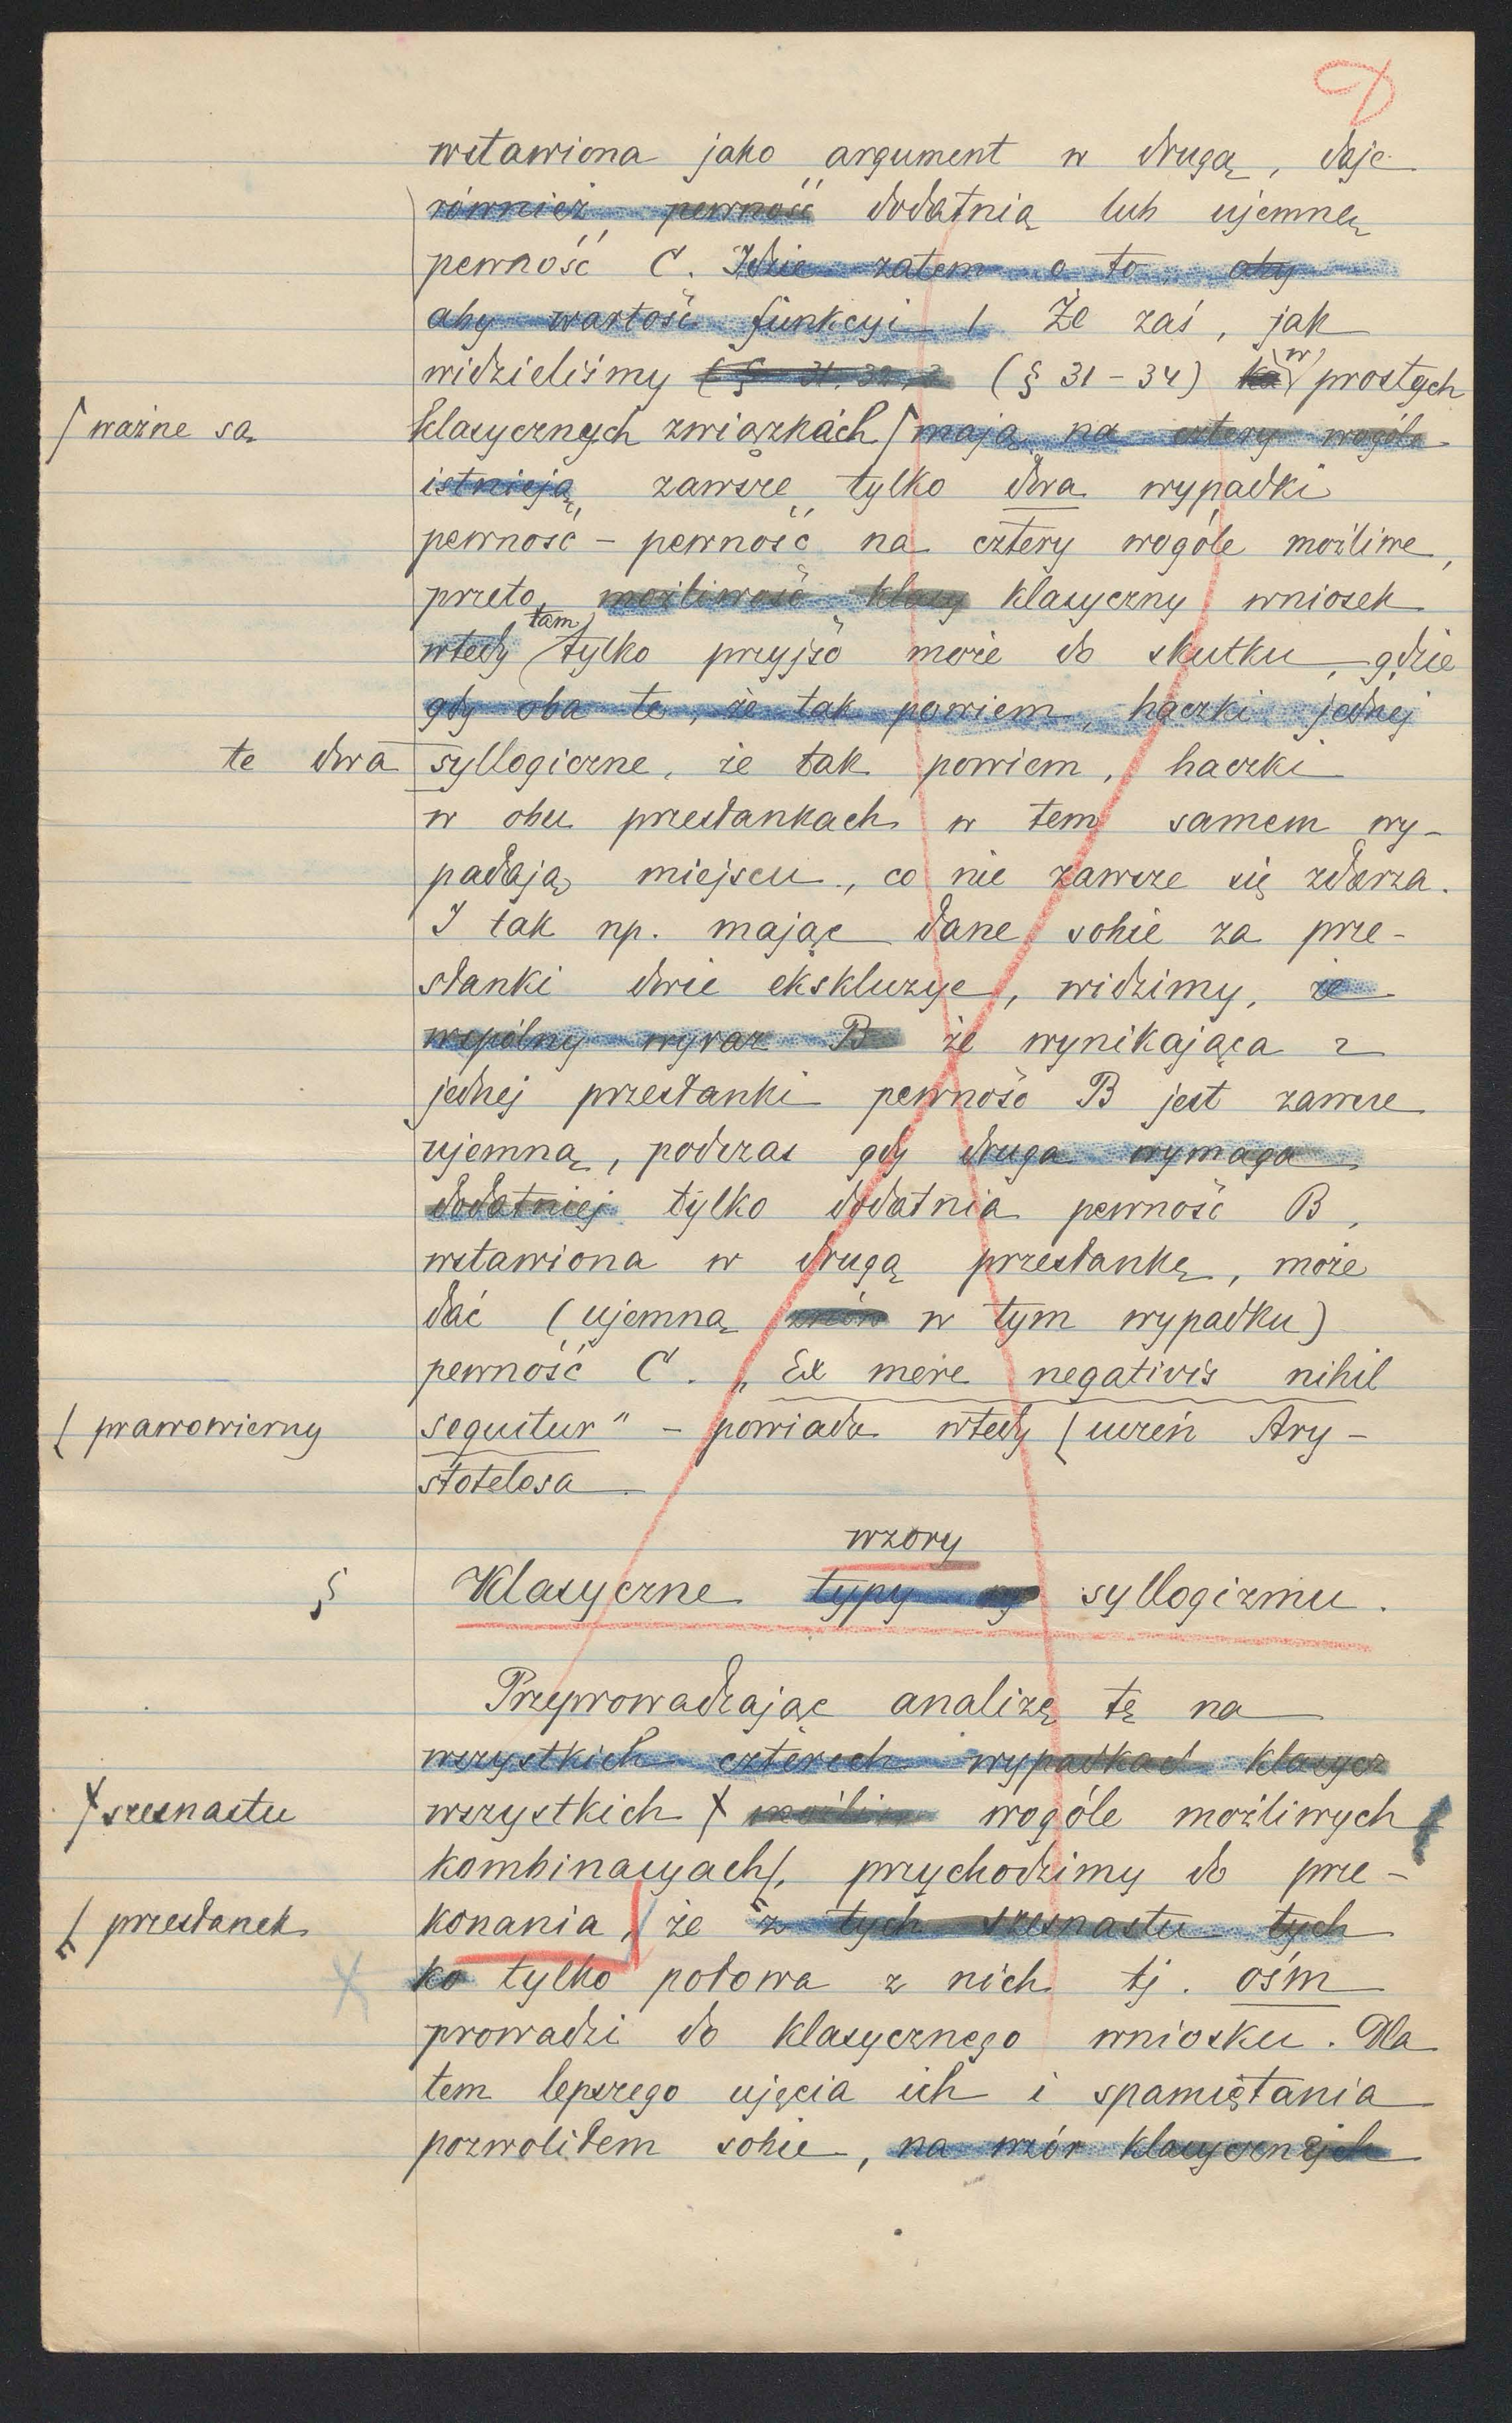 D
wstawiona jako argument w drugą, daje
również pewność dodatnią lub ujemną
pewność C. Idzie zatem o to aby
aby wartość funkcyi Że zaś, jak
widzieliśmy (§ 31, 32, 3 (§ 31 – 34) w prostych
ważne są
klasycznych związkach mają na cztery wogóle
istnieją zawsze tylko dwa wypadki
pewność – pewność na cztery wogóle możliwe,
przeto, możliwość klasy klasyczny wniosek
wtedy tam tylko przyjść może do skutku, gdzie
gdy oba te, że tak powiem, haczki jednej
te dwa syllogiczne, że tak powiem, haczki
w obu przesłankach w tem samem wy-
padają miejscu, co nie zawsze się zdarza.
I tak np. mając dane sobie za prze-
słanki dwie ekskluzye, widzimy, że
wspólny wyraz B że wynikająca z
jednej przesłanki pewność B jest zawsze
ujemną, podczas gdy druga wymaga
dodatniej tylko dodatnia pewność B,
wstawiona w drugą przesłankę, może
dać (ujemną w tym wypadku)
pewność C. „Ex mere negativis nihil
prawowierny
sequitur" – powiada wtedy uczeń Ary-
stotelesa
wzory
§ Klasyczne typy syllogizmu.
Przeprowadzając analizę tę na
wszystkich czterech wypadkach klasycz
szesnastu
wszystkich możliw wogóle możliwych
kombinacyach, przychodzimy do prze-
przesłanek
konania, że z tych szesnastu tych
ko tylko połowa z nich tj. ośm
prowadzi do klasycznego wniosku. Dla
tem lepszego ujęcia ich i spamiętania
pozwoliłem sobie, na wzór klasycznych